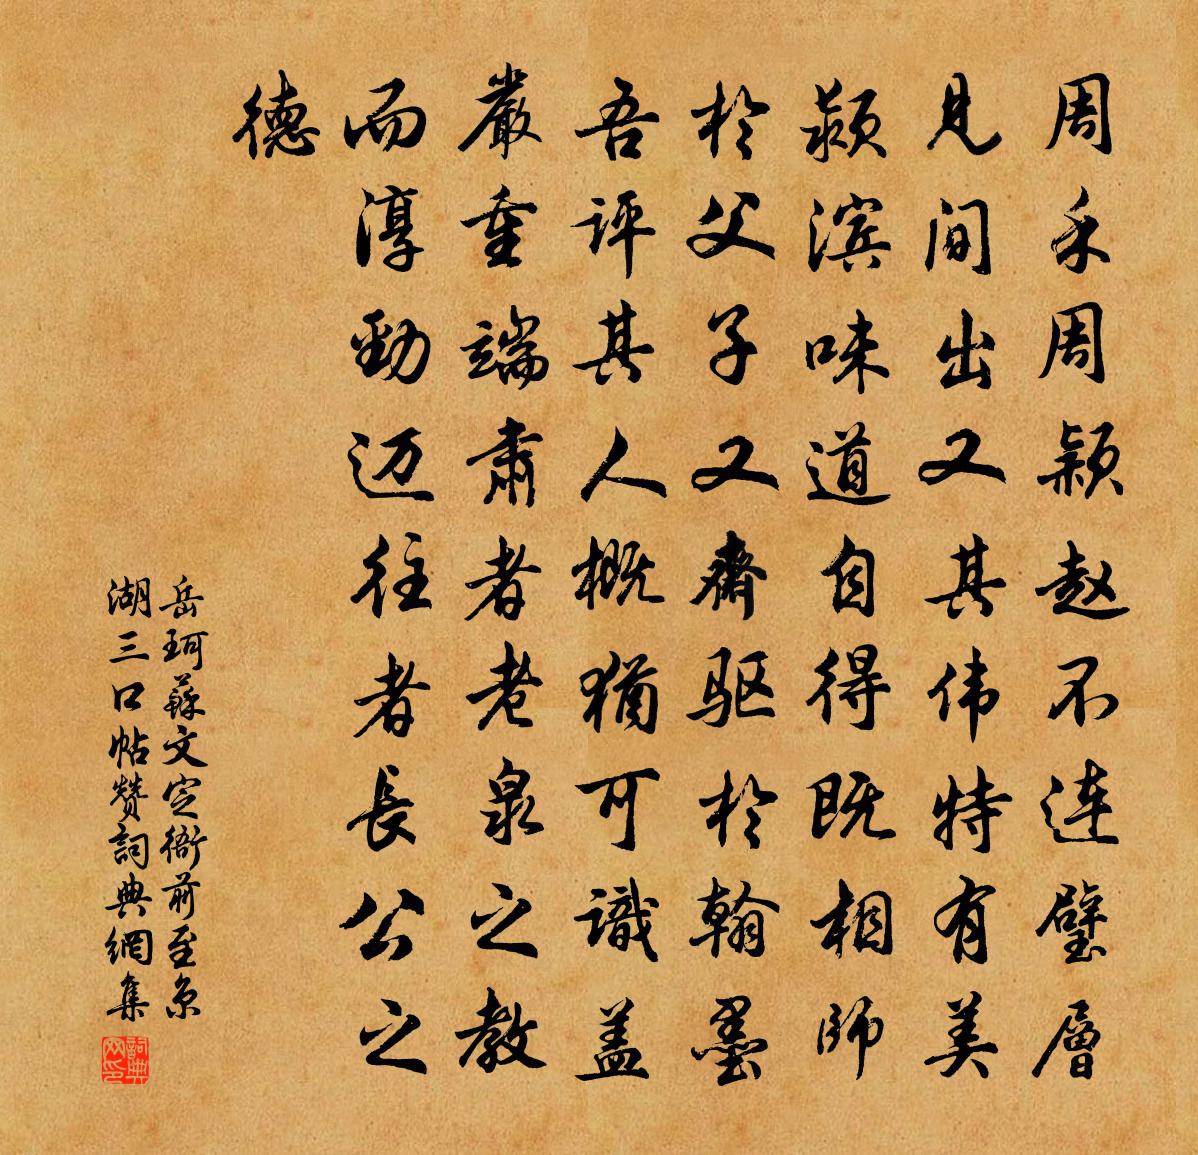 周禾周颖赵不连璧層
見间出又其伟特有美
颍滨味道自得既相師
於父子又齊驱於翰墨
吾評其人概猶可識盖
嚴重端肅者老泉之教
而淳勁迈往者長公之
德
岳珂蘇文定衙前至京
湖三口帖赞詞典網集
詞典网印